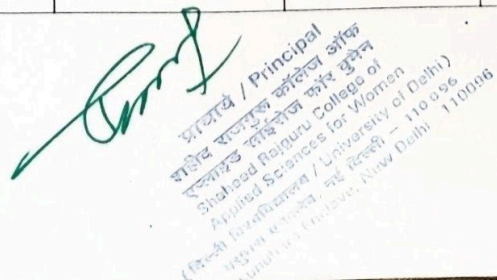 प्राचार्य / Principal
शहीद राजगुरु कॉलेज ऑफ
एप्लाइड साइंसेज फॉर वुमेन
Shaheed Rajguru College of
Applied Sciences for Women
(दिल्ली विश्वविद्यालय / University of Delhi)
वसुन्धरा एन्क्लेव, नई दिल्ली - 110096
Enclave, New Delhi 110096